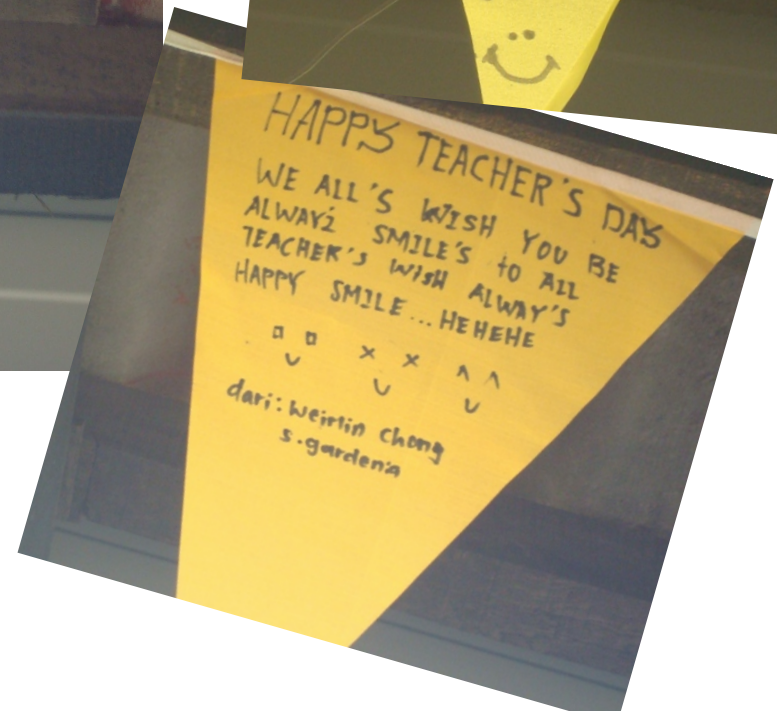 HAPPY TEACHER'S DAY
WE ALL'S WISH YOU BE
ALWAYS SMILE'S TO ALL
TEACHER'S WISH ALWAY'S
HAPPY SMILE...HEHEHE
dari: Weirlin Chong
s.gardenia